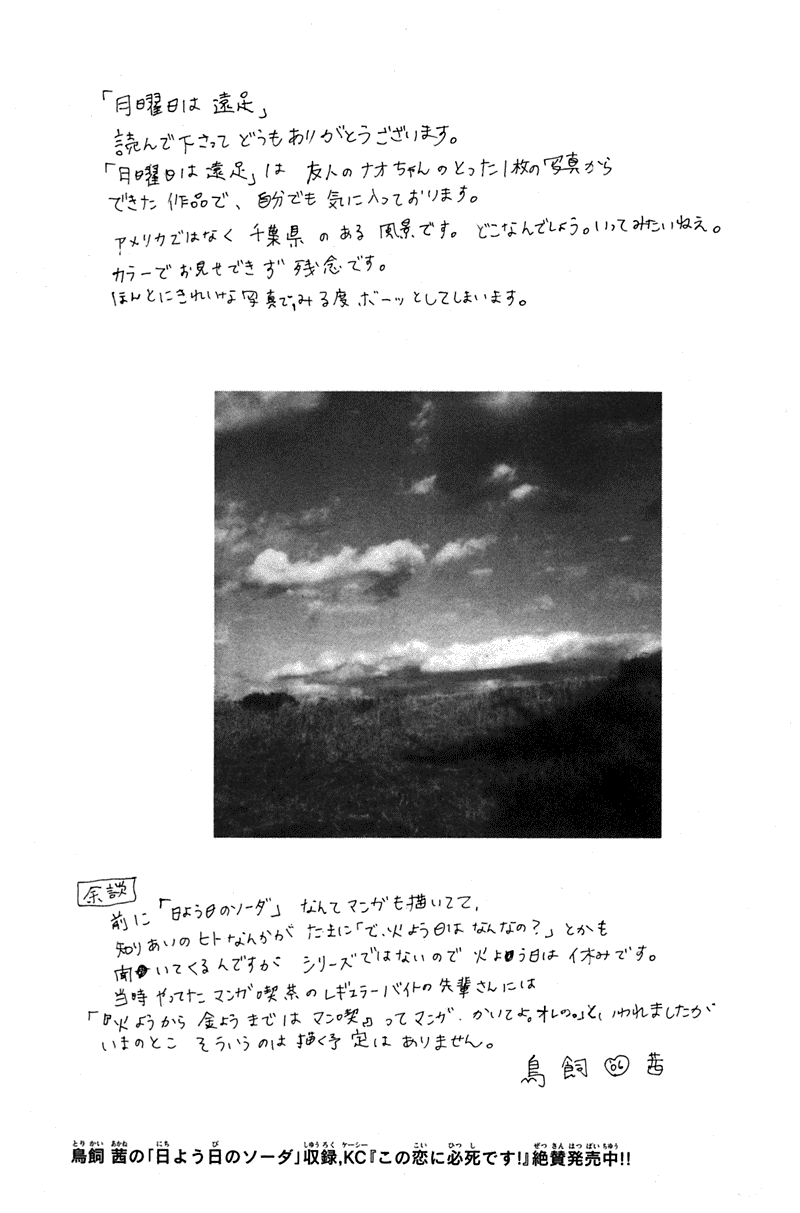 「月曜日は 遠足」
読んで下さって どうもありがとうございます。
「月曜日は 遠足」は 友人のナオちゃんのとった1枚の写真から
できた 作品で、自分でも 気に入っております。
アメリカではなく 千葉県 のある 風景です。 どこなんでしょう。いってみたいねえ。
カラーでお見せできず 残念です。
ほんとにきれいな写真で、みる度 ボーッとしてしまいます。
余談
前に「日よう日のソーダ」 なんてマンガも描いてて、
知りあいのヒトなんかが たまに「で、火よう日は なんなの?」とかも
聞いてくるんですが シリーズではないので 火よう日は 休みです。
当時 やってた マンガ喫茶の レギュラーバイトの 先輩さんには
「『火ようから 金ようまでは マン喫』ってマンガ、かいてよ。オレの。」と、いわれましたが
いまのとこ そういうのは 描く予定は ありません。
鳥飼 '06 茜
とり かい あかね にち び しゅうろく ケーシー こい ひっ し ぜっ さん はつ ばい ちゅう
鳥飼 茜の「日よう日のソーダ」収録,KC『この恋に必死です!』絶賛発売中!!